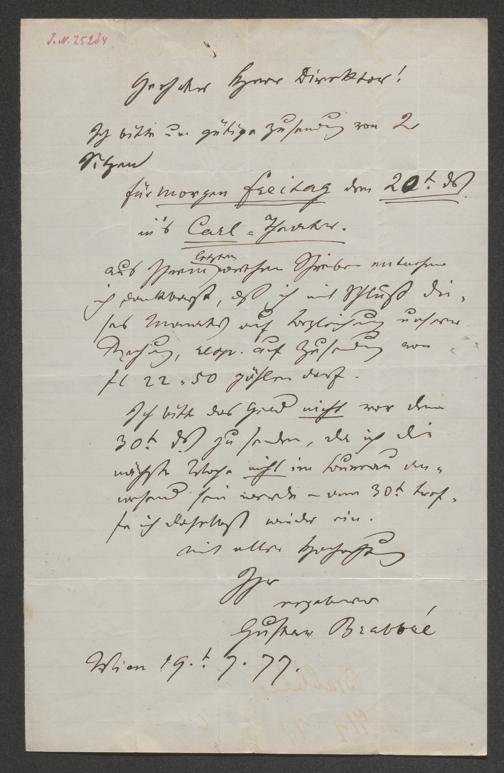 J.N. 25284
Geehrter Herr Direktor!
Ich bitte um gütige Zusendung von 2
Sitzen
für morgen Freitag den 20t. ds
in's Carl-Theater.
letzten
aus Ihrem werthen Schreiben entnehme
ich dankbarst, daß ich mit Schluß die-
ses Monats auf Begleichung unserer
Rechnung, resp. auf Zusendung von
fl 22.50 zählen darf.
Ich bitte das Geld nicht vor dem
30t ds zu senden, da ich die
nächste Woche nicht im Bureau an-
wesend sein werde – am 30t tref-
fe ich daselbst wieder ein.
mit aller Hochachtung
Ihr
ergebener
Gustav Brabbée
Wien 19.t 7. 77.